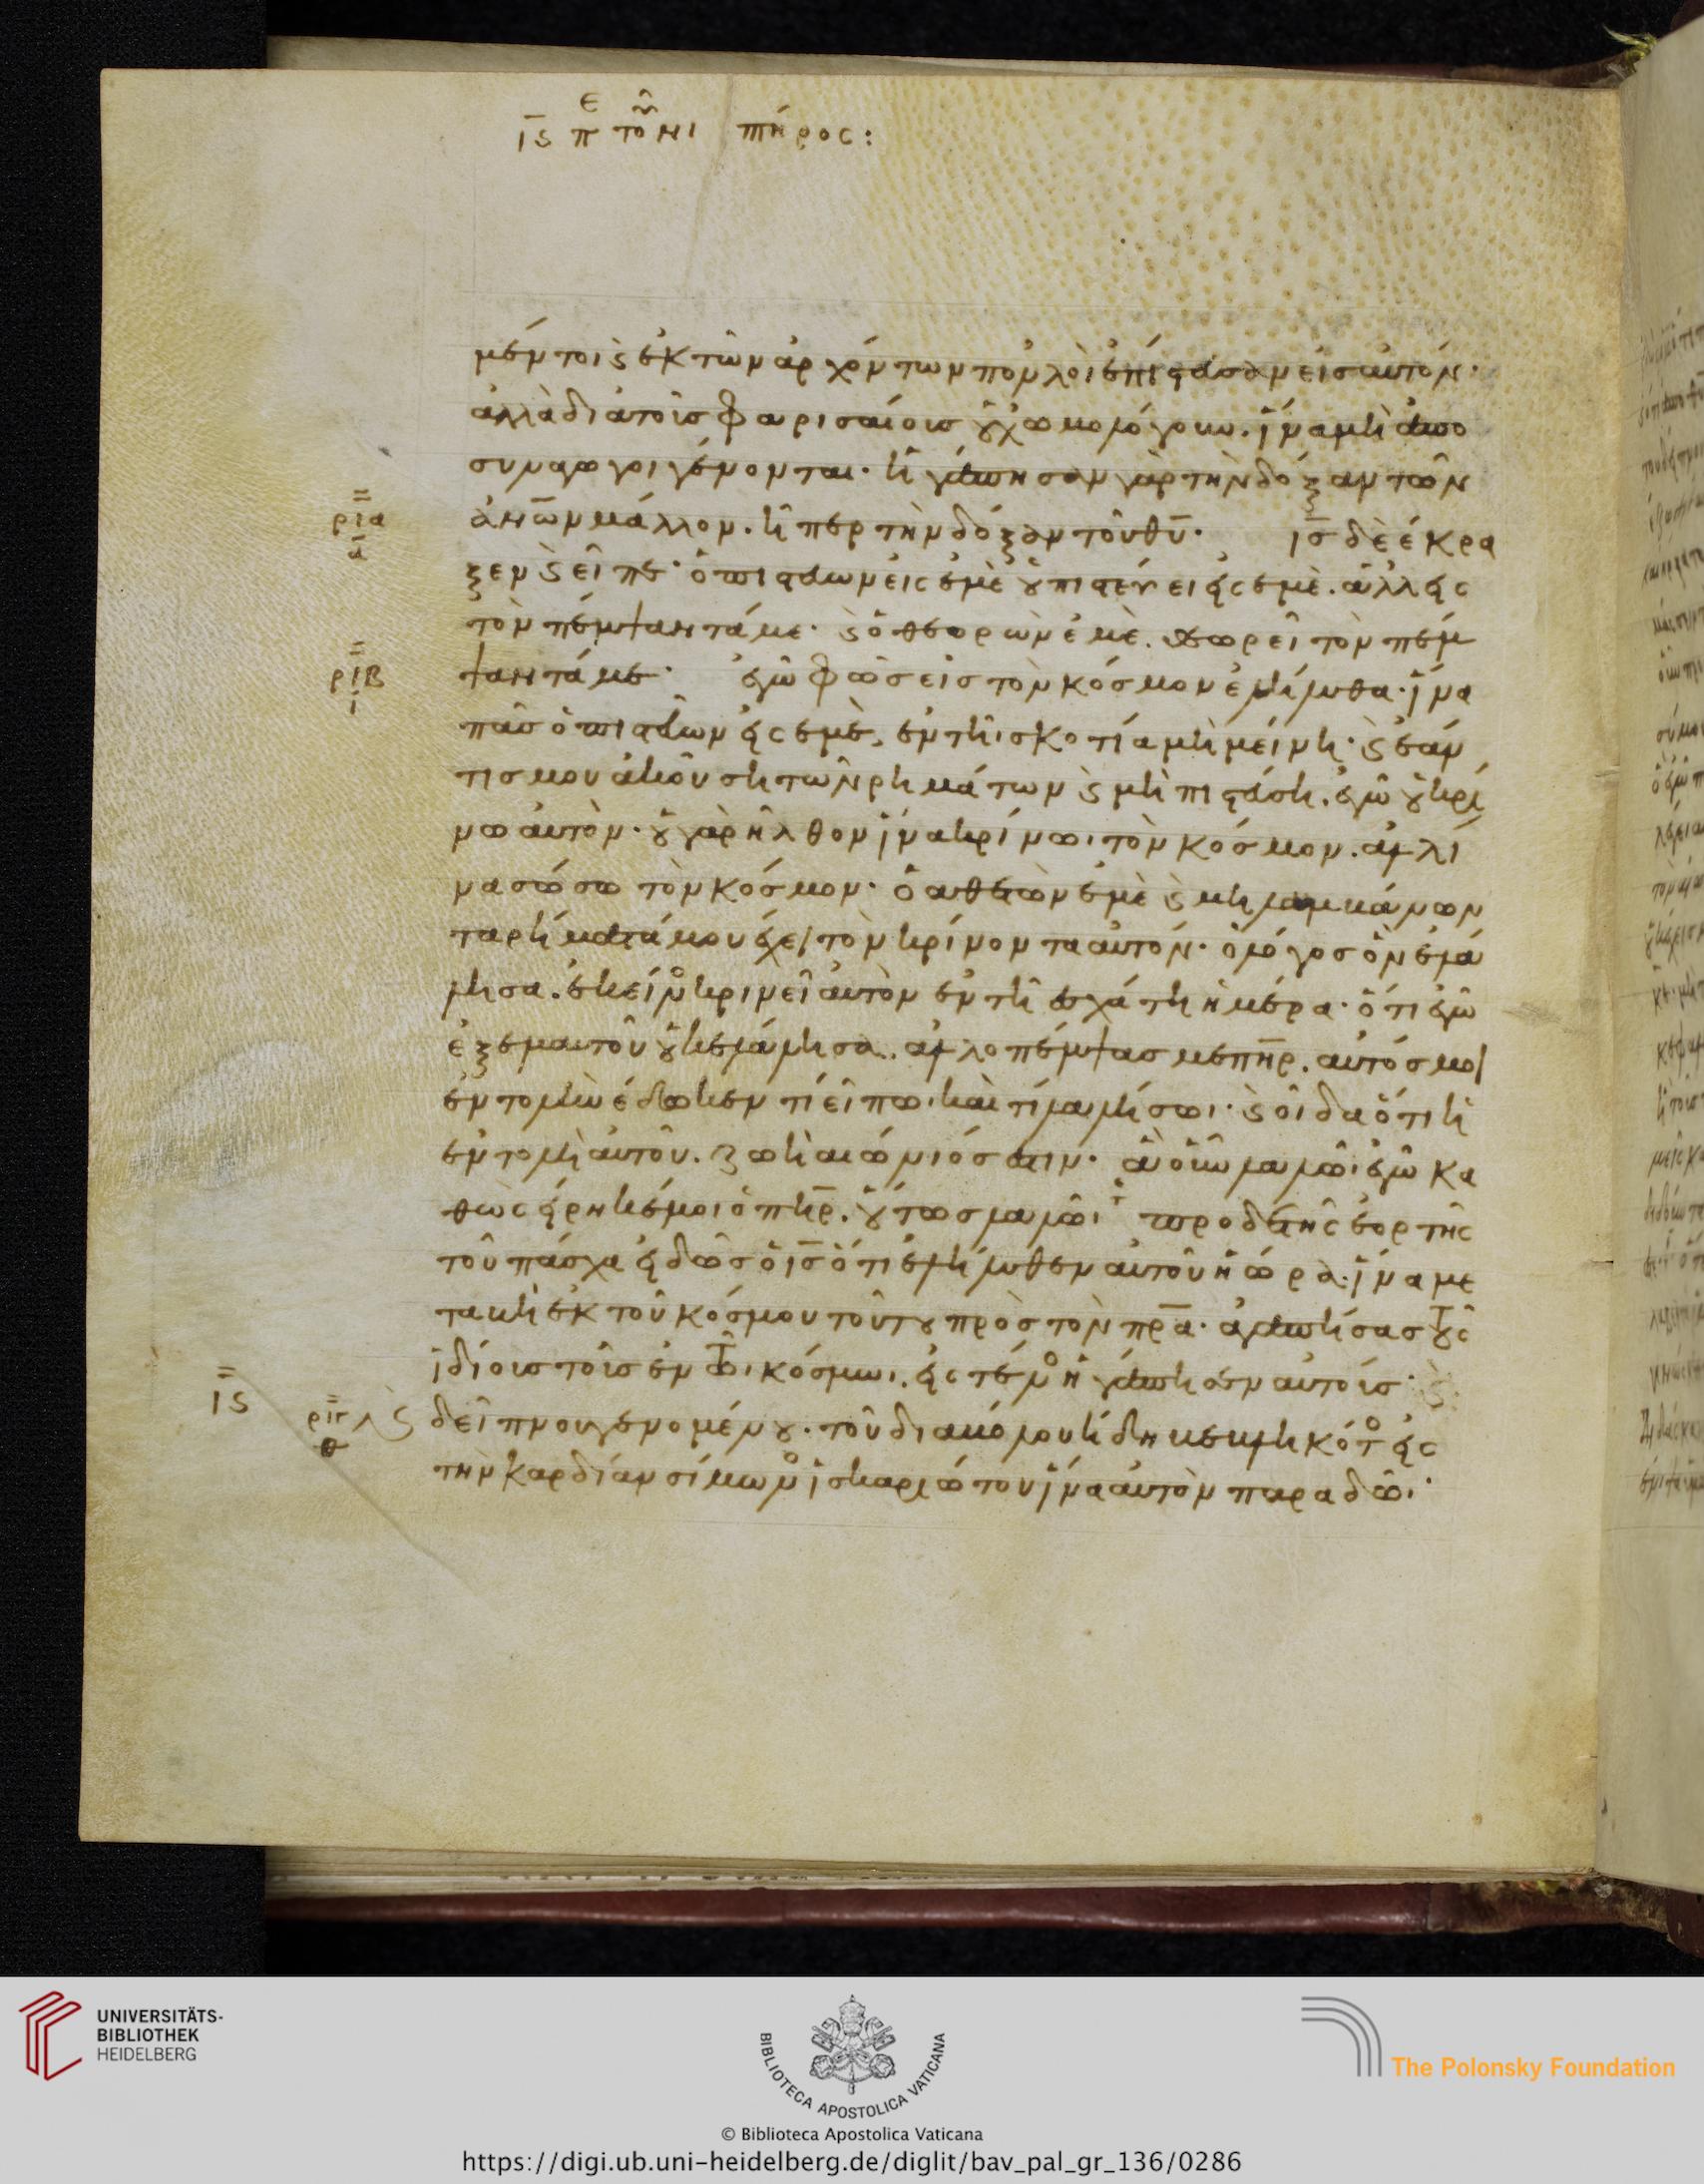 ιϛ πε τοῦ νιπτήρος:
μέν τοι ϛ ἐκ τῶν ἀρχόντων πολλοὶ ἐπίστευσαν εἰς αὐτόν·
ἀλλὰ διὰ τοῖς φαρισαίοις οὐχ ὡμολόγουν. ἵνα μὴ ἀπο
συναγωγοι γένονται· ἠγάπησαν γὰρ τὴν δόξαν τῶν
ρια ἀν̅ω̅ν μάλλον. ἤπερ τὴν δόξαν τοῦ θυ̅. ις̅ δὲ έκρα
α
ξεν ϛ εἶπε· ὁ πιστεύων εἰς ἐμὲ οὐ πιστεύει εἰς ἐμὲ. ἀλλ εἰς
τὸν πέμψαντά με· ϛ ὁ θεορὼν ἐμὲ. θεωρεῖ τὸν πέμ
ριβ ψαντά με· ἐγὼ φῶς εἰς τὸν κόσμον ἐλήλυθα· ἵνα
ι
πᾶς ὁ πιστεύων εἰς ἐμὲ, ἐν τῆι σκοτία μὴ μείνη· ϛ ἐάν
τις μου ἀκούση τῶν ρημάτων ϛ μὴ πιστεύση. ἐγὼ οὐ κρί
νω αὐτὸν· οὐ γὰρ ἦλθον ἵνα κρίνωι τὸν κόσμον. ἀλλί
να σώσω τὸν κόσμον· ὁ αθετῶν ἐμὲ ϛ μὴ λαμβάνων
τα ρήματά μου ἔχει τὸν κρίνοντα αὐτόν· ὁ λόγος ὃν ἐλά
λησα. ἐκείνος κρινεῖ αὐτὸν ἐν τῆ ἐσχάτη ἡμέρα· ὅτι ἐγὼ
ἐξ ἐμαυτοῦ οὐκ ἐλάλησα. ἀλλ ο πέμψας με πη̅ρ. αὐτός μοι
ἐντολὴν έδωκεν τί εἴπω· καὶ τί λαλήσωι· ϛ οἶδα ὅτι ἡ
ἐντολὴ αὐτοῦ. ζωὴ αιώνιός ἐστιν· ἃ οὖν λαλῶι ἐγὼ κα
θὼς εἴρηκέ μοι ὁ πη̅ρ. οὕτως λαλῶι προ δὲ τῆς ἑορτῆς
τοῦ πάσχα εἰδὼς ὁ ις̅ ὅτι ἐλήλυθεν αυτοῦ ἡ ώρα· ἵνα με
ταβῆ ἐκ τοῦ κόσμου τούτου πρὸς τὸν πρ̅α· ἀγαπήσας τοὺς
ἰδίοις τοῖς ἐν τῶι κόσμωι. εἰς τέλος ἠγάπησεν αὐτοίς· ϛ
ιϛ ριγ ϛ δείπνου γενομένου. τοῦ διαβόλου ήδη βεβληκότος εἰς
θ
την καρδίαν σίμωνος ἰσκαριώτου ἵνα αὐτὸν παραδῶι·
UNIVERSITÄTS-
BIBLIOTHEK
HEIDELBERG
BIBLIOTECA APOSTOLICA VATICANA
The Polonsky Foundation
© Biblioteca Apostolica Vaticana
https://digi.ub.uni-heidelberg.de/diglit/bav_pal_gr_136/0286